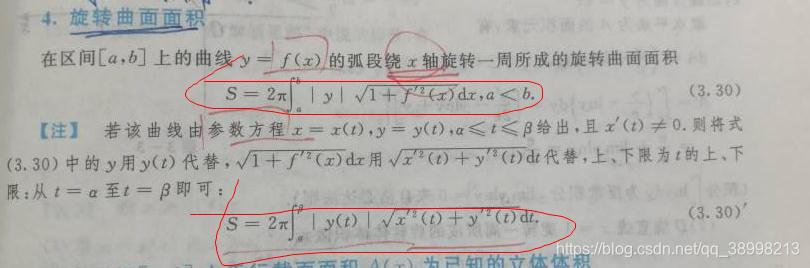 4. 旋转曲面面积
在区间[a,b]上的曲线 y = f(x) 的弧段绕 x 轴旋转一周所成的旋转曲面面积
S = 2π∫_a^b | y | √(1 + f'²(x)) dx, a < b. (3.30)
【注】 若该曲线由参数方程 x = x(t), y = y(t), α ≤ t ≤ β 给出,且 x'(t) ≠ 0. 则将式
(3.30) 中的 y 用 y(t) 代替, √(1 + f'²(x)) dx 用 √(x'²(t) + y'²(t)) dt 代替,上、下限为 t 的上、下
限:从 t = α 至 t = β 即可:
S = 2π∫_α^β | y(t) | √(x'²(t) + y'²(t)) dt. (3.30)'
https://blog.csdn.net/qq_38998213
为已知的立体体积